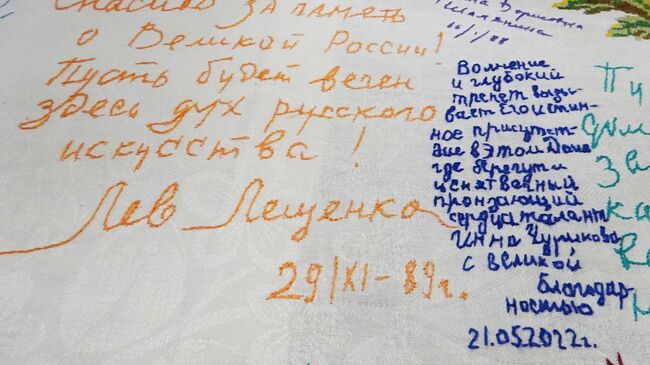 Спасибо за память
о Великой России!
Пусть будет вечен
здесь дух русского
искусства!
Лев Лещенко
29/XI-89г.
Шаляпина
Волнение
и глубокий
трепет вызы-
вает Его истин-
ное присутст-
вие в этом Доме
где берегут и
ценят вечный
пронзающий
сердца талант
Инна Чурикова
с великой
благодар-
ностью
21.05.2022г.